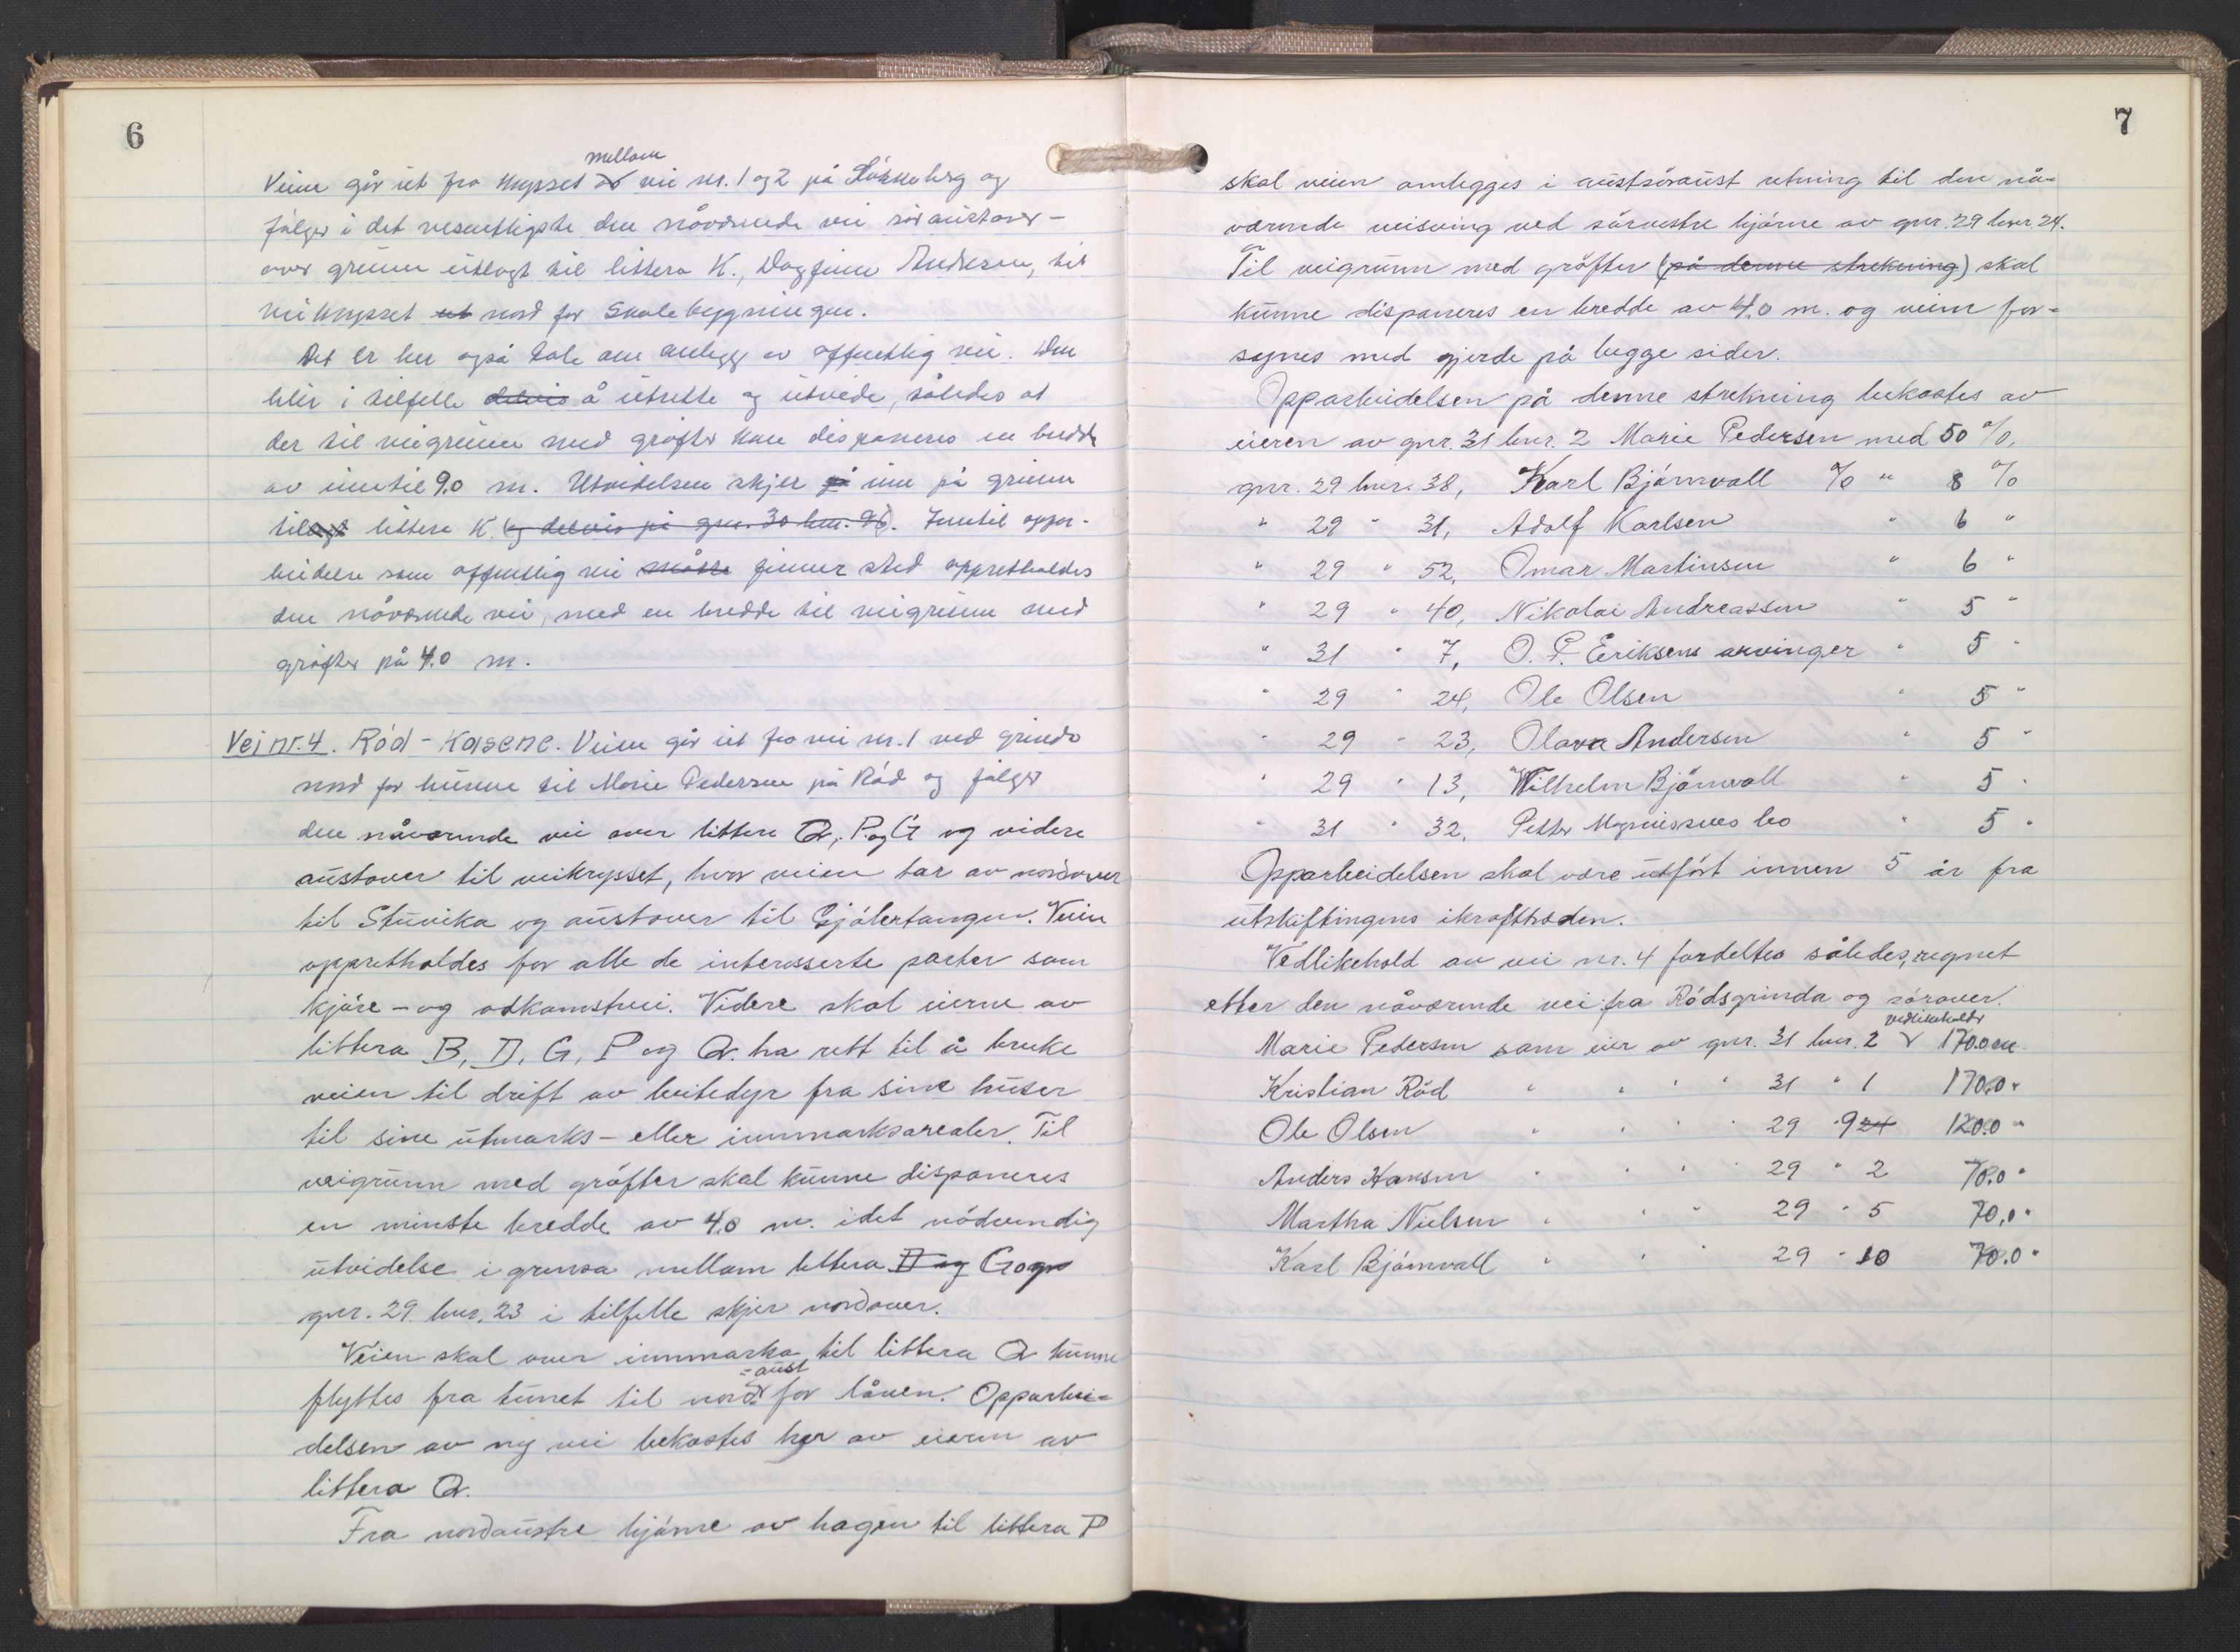 6
mellom
Veien går ut fra krysset av vei nr. 1 og 2 på Løkkeberg og
følger i det vesentligste den nåværende vei søraustover -
over grunn utlagt til littera K., Dagfinn Andersen, til
veikrysset ut nord for Skolebygningen.
Det er her også tale om anlegg av offentlig vei. Den
blir i tilfelle delvis å utrette og utvide, således at
der til veigrunn med grøfter kan disponeres en bredde
av inntil 9.0 m. Utvidelsen skjer på inn på grunn
tillagt littera K. og delvis på gnr. 30 bnr. 96. Inntil oppar-
beidelse som offentlig vei måtte finner sted opprettholdes
den nåværende vei, med en bredde til veigrunn med
grøfter på 4.0 m.
Vei nr. 4. Rød - Kasene. Veien går ut fra vei nr. 1 ved grinda
nord for husene til Marie Pedersen på Rød og følger
den nåværende vei over littera Q, P. og G og videre
austover til veikrysset, hvor veien tar av nordover
til Stuvika og austover til Gjølertangen. Veien
opprettholdes for alle de interesserte parter som
kjøre- og adkomstvei. Videre skal eierne av
littera B, D, G, P og Q. ha rett til å bruke
veien til drift av beitedyr fra sine huser
til sine utmarks- eller innmarksarealer. Til
veigrunn med grøfter skal kunne disponeres
en minste bredde av 4.0 m. idet nødvendig
utvidelse i grensa mellom littera D og G og
gnr. 29 bnr. 23 i tilfelle skjer nordover.
Veien skal over innmarka til littera Q kunne
-aust
flyttes fra tunet til nord for låven. Opparbei-
delsen av ny vei bekostes her av eieren av
littera Q.
Fra nordaustre hjørne av hagen til littera P
7
skal veien omlegges i austsøraust retning til den nå-
værende veisving ved sørvestre hjørne av gnr. 29 bnr. 24.
Til veigrunn med grøfter (på denne strekning) skal
kunne disponeres en bredde av 4.0 m. og veien for-
synes med gjerde på begge sider.
Opparbeidelsen på denne strekning bekostes av
eieren av gnr. 31 bnr. 2 Marie Pedersen med 50 %,
gnr. 29 bnr. 38, Karl Bjørnvall % " 8 %
" 29 " 31, Adolf Karlsen " 6 "
" 29 " 52, Omar Martinsen " 6 "
" 29 " 40, Nikolai Andreassen " 5 "
" 31 " 7, O. P. Eriksens arvinger " 5 "
" 29 " 24, Ole Olsen " 5 "
" 29 " 23, Olava Andersen " 5 "
" 29 " 13, Wilhelm Bjørnvall " 5 "
" 31 " 32, Petter Magnussens bo " 5 "
Opparbeidelsen skal være utført innen 5 år fra
utskiftingens ikrafttreden.
Vedlikehold av vei nr. 4 fordeltes således, regnet
etter den nåværende vei fra Rødsgrinda og sørover.
vedlikeholdr
Marie Pedersen som eier av gnr. 31 bnr. 2 170.0 m
Kristian Rød " " " " 31 " 1 170.0 "
Ole Olsen " " " " 29 " 9 24 120.0 "
Anders Hansen " " " " 29 " 2 70.0 "
Martha Nielsen " " " 29 " 5 70.0 "
Karl Bjørnvall " " " 29 " 10 70.0 "